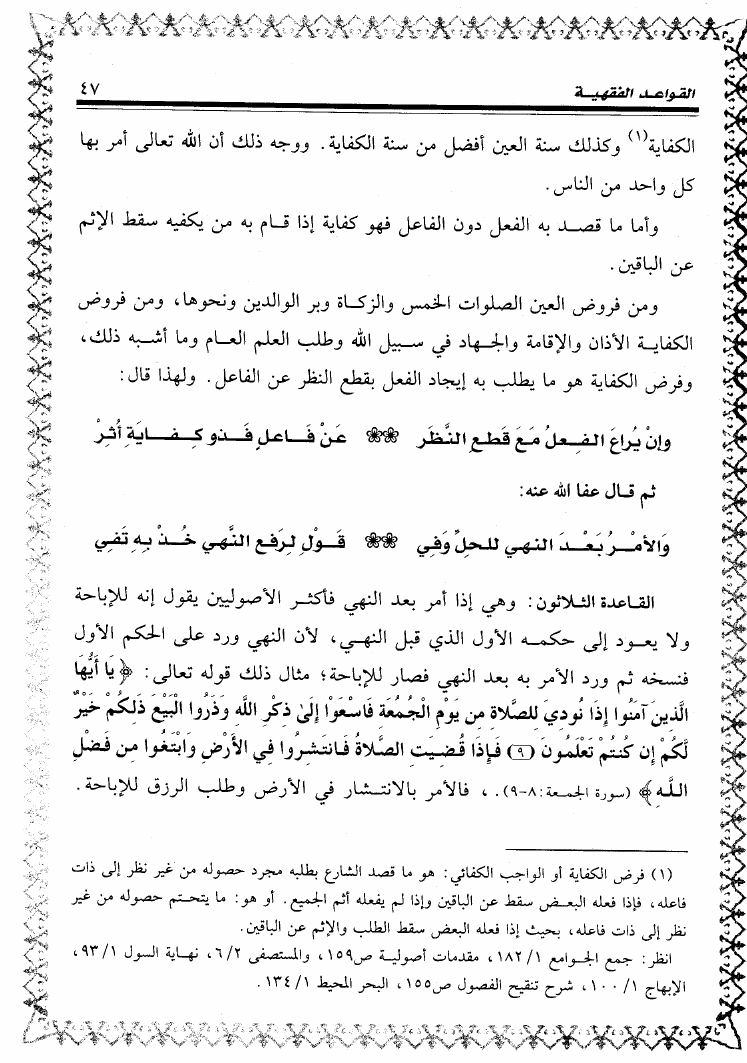 القواعد الفقهية
٤٧
الكفاية(١) وكذلك سنة العين أفضل من سنة الكفاية. ووجه ذلك أن الله تعالى أمر بها
كل واحد من الناس.
وأما ما قصد به الفعل دون الفاعل فهو كفاية إذا قام به من يكفيه سقط الإثم
عن الباقين.
ومن فروض العين الصلوات الخمس والزكاة وبر الوالدين ونحوها، ومن فروض
الكفاية الأذان والإقامة والجهاد في سبيل الله وطلب العلم العام وما أشبه ذلك،
وفرض الكفاية هو ما يطلب به إيجاد الفعل بقطع النظر عن الفاعل. ولهذا قال:
وإنْ يُراعَ الفِعلُ مَعَ قَطعِ النَّظَر عَنْ فَاعلٍ فَذو كِفَايَةِ أُثِرْ
ثم قال عفا الله عنه:
وَالأمْرُ بَعْدَ النهي للحلِّ وَفِي قَوْلٍ لِرَفعِ النَّهي خُذْ بِهِ تَفي
القاعدة الثلاثون: وهي إذا أمر بعد النهي فأكثر الأصوليين يقول إنه للإباحة
ولا يعود إلى حكمه الأول الذي قبل النهي، لأن النهي ورد على الحكم الأول
فنسخه ثم ورد الأمر به بعد النهي فصار للإباحة؛ مثال ذلك قوله تعالى: ﴿يَا أَيُّهَا
الَّذِينَ آمَنُوا إِذَا نُودِيَ لِلصَّلاةِ مِن يَوْمِ الْجُمُعَةِ فَاسْعَوْا إِلَىٰ ذِكْرِ اللَّهِ وَذَرُوا الْبَيْعَ ذَلِكُمْ خَيْرٌ
لَّكُمْ إِن كُنتُمْ تَعْلَمُونَ (٩) فَإِذَا قُضِيَتِ الصَّلاةُ فَانتَشِرُوا فِي الأَرْضِ وَابْتَغُوا مِن فَضْلِ
اللَّهِ﴾ (سورة الجمعة:٨-٩). ، فالأمر بالانتشار في الأرض وطلب الرزق للإباحة.
(١) فرض الكفاية أو الواجب الكفائي: هو ما قصد الشارع بطلبه مجرد حصوله من غير نظر إلى ذات
فاعله، فإذا فعله البعض سقط عن الباقين وإذا لم يفعله أثم الجميع. أو هو: ما يتحتم حصوله من غير
نظر إلى ذات فاعله، بحيث إذا فعله البعض سقط الطلب والإثم عن الباقين.
انظر: جمع الجوامع ١/ ١٨٢، مقدمات أصولية ص١٥٩، والمستصفى ٢/ ٦، نهاية السول ١/ ٩٣،
الإبهاج ١/ ١٠٠، شرح تنقيح الفصول ص١٥٥، البحر المحيط ١/ ١٣٤.